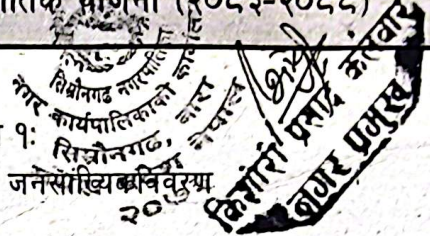 योजना (२०८३-२०८८)
सिम्रौनगढ नगरपालिका
नगर कार्यपालिकाको कार्यालय
सिम्रौनगढ, बारा
नेपाल
१:
जनसांख्यिक विवरण
किशोरी प्रसाद कलवार
नगर प्रमुख